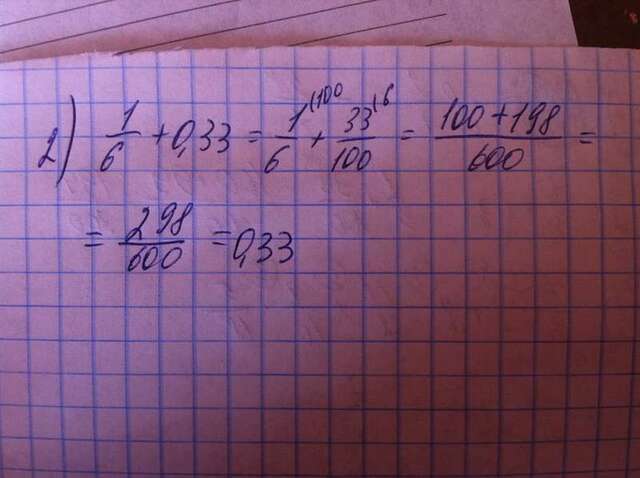 2) 1/6 + 0,33 = 1(100/6 + 33(6/100 = 100+198/600 =
= 298/600 = 0,33